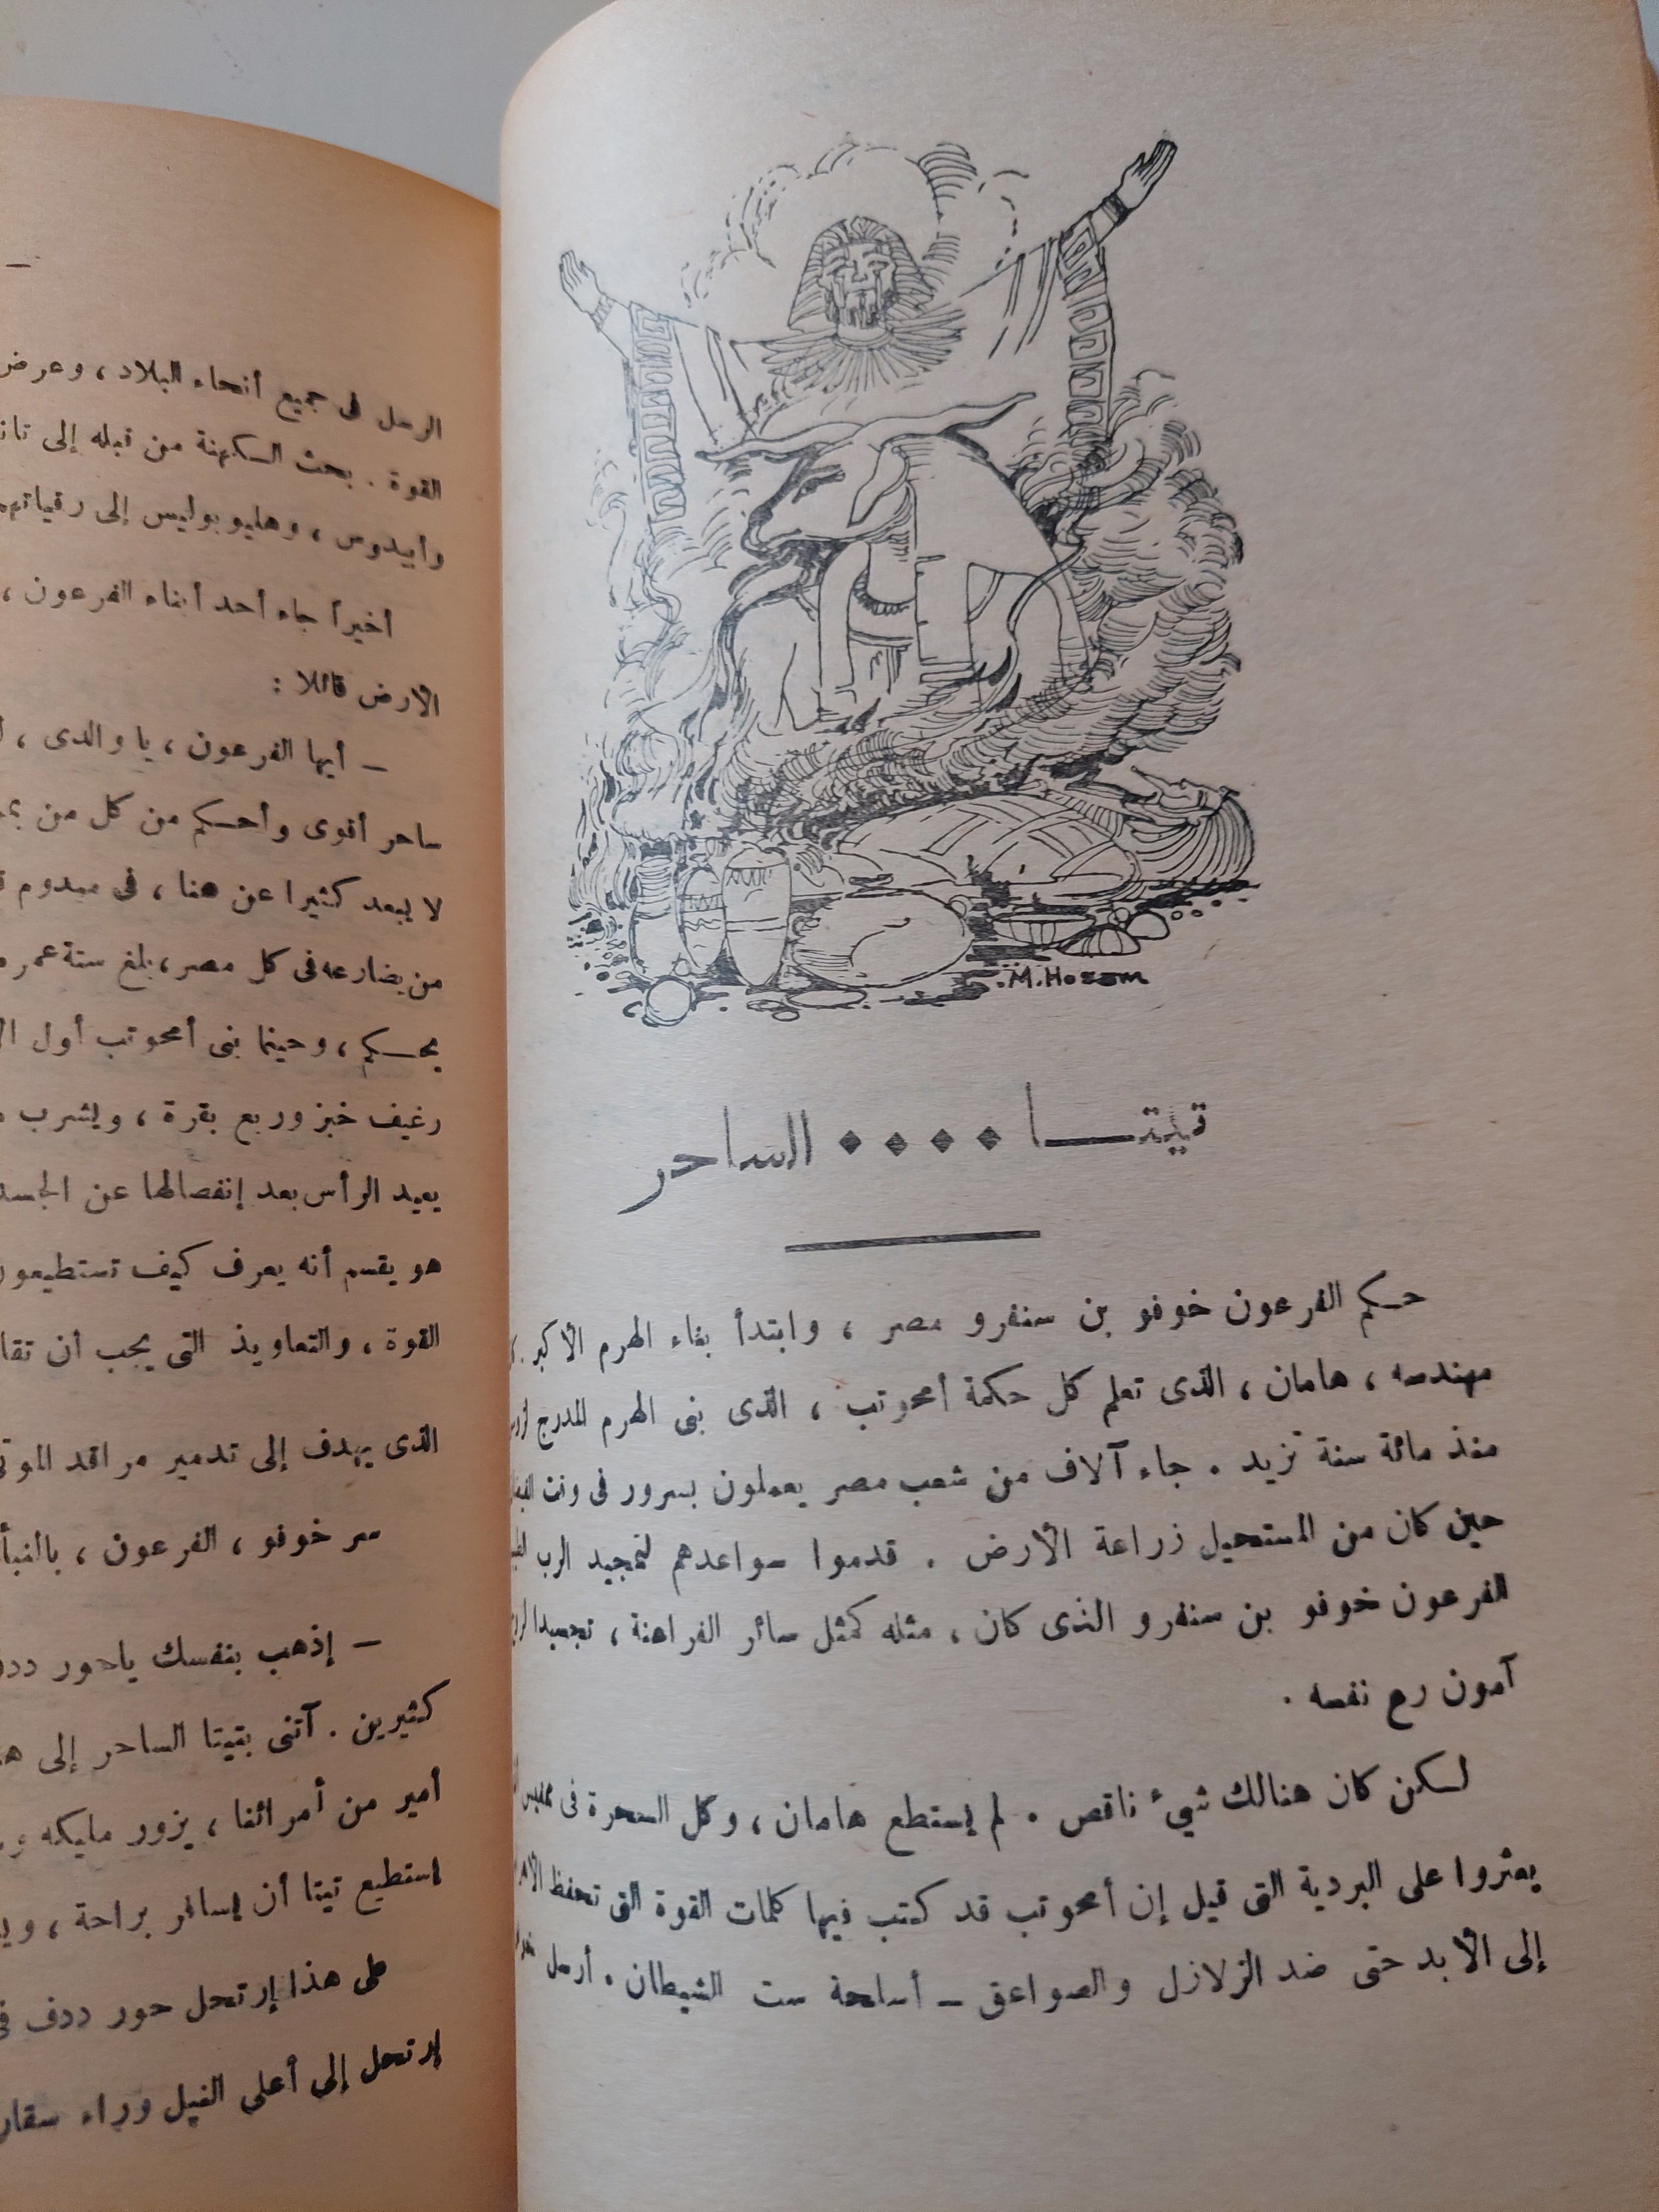 M. Hosam
تيتا .... الساحر
حكم الفرعون خوفو بن سنفرو مصر ، وابتدأ بناء الهرم الأكبر .
مهندسه ، هامان ، الذى تعلم كل حكمة أمحوتب ، الذى بنى الهرم المدرج
منذ مائة سنة تزيد . جاء آلاف من شعب مصر يعملون بسرور فى وقت
حين كان من المستحيل زراعة الأرض . قدموا سواعدهم لتمجيد الرب
الفرعون خوفو بن سنفرو الذى كان ، مثله كمثل سائر الفراعنة ، تجسيدا
آمون رع نفسه .
لكن كان هنالك شيء ناقص . لم يستطع هامان ، وكل السحرة فى ممفيس
يعثروا على البردية التى قيل إن أمحوتب قد كتب فيها كلمات القوة التى تحفظ
إلى الأبد حتى ضد الزلازل والصواعق — أسلحة ست الشيطان . أرسل
—
الرسل فى جميع أنحاء البلاد ، وعرض
القوة . بحث الكهنة من قبله إلى
وأبيدوس ، وهليوبوليس إلى
أخيراً جاء أحد أبناء الفرعون ،
الأرض قائلا :
— أيها الفرعون ، يا والدى ،
ساحر أقوى وأحكم من كل من
لا يبعد كثيرا عن هنا ، فى ميدوم
من يضارعه فى كل مصر ، بلغ ستة عمره
يحكم ، وحينما بنى أمحوتب أول
رغيف خبز وربع بقرة ، ويشرب
يعيد الرأس بعد إنفصالها عن الجسد
هو يقسم أنه يعرف كيف تستطيعون
القوة ، والتعاويذ التى يجب أن
الذى يهدف إلى تدمير مراقد
سر خوفو ، الفرعون ، بالنبأ
— إذهب بنفسك ياحور
كثيرين . آتنى بتيتا الساحر إلى
أمير من أمرائنا ، يزور مليكه
استطيع تيتا أن يسافر براحة ،
على هذا إرتحل حور ددف
إرتحل إلى أعلى النيل وراء